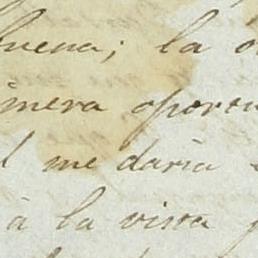 buena; la
imera opor
me daria
à la visva